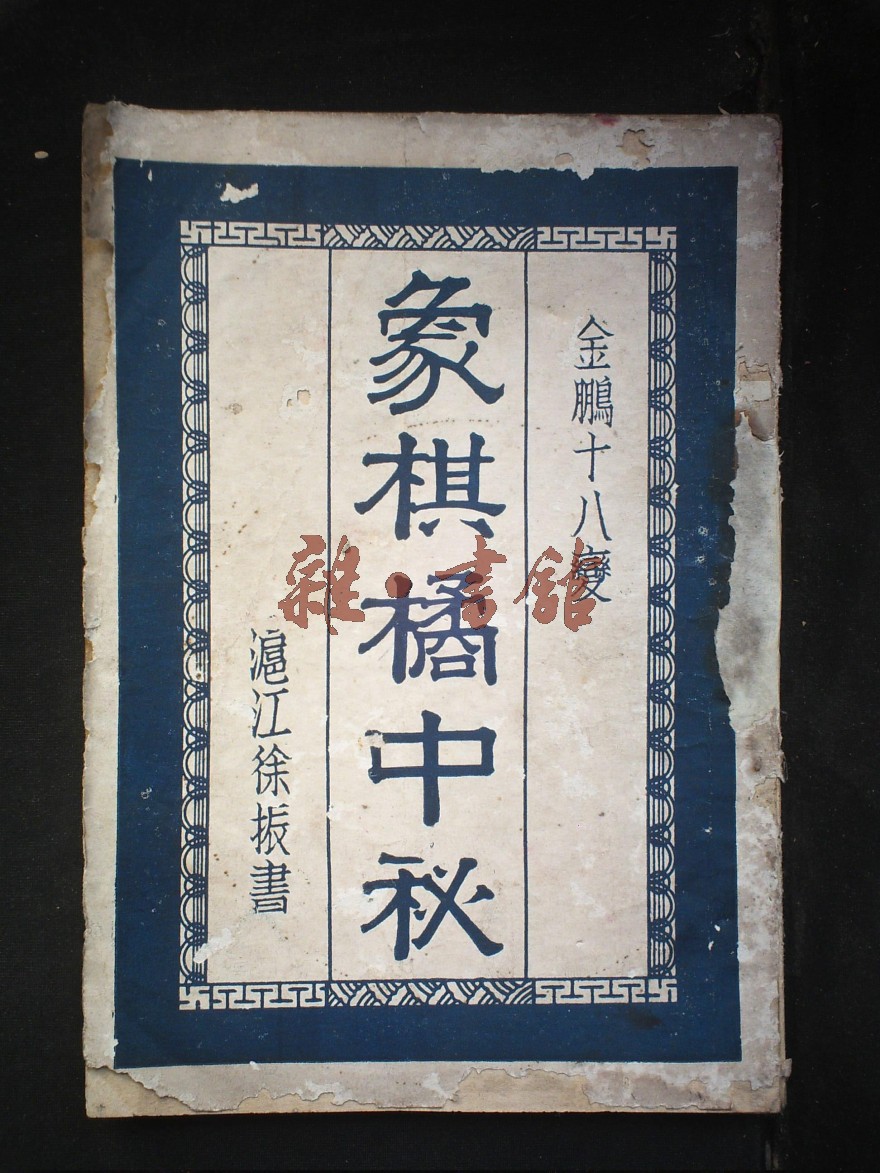 金鵬十八變
象棋橘中秘
滬江徐振書
雜·書館